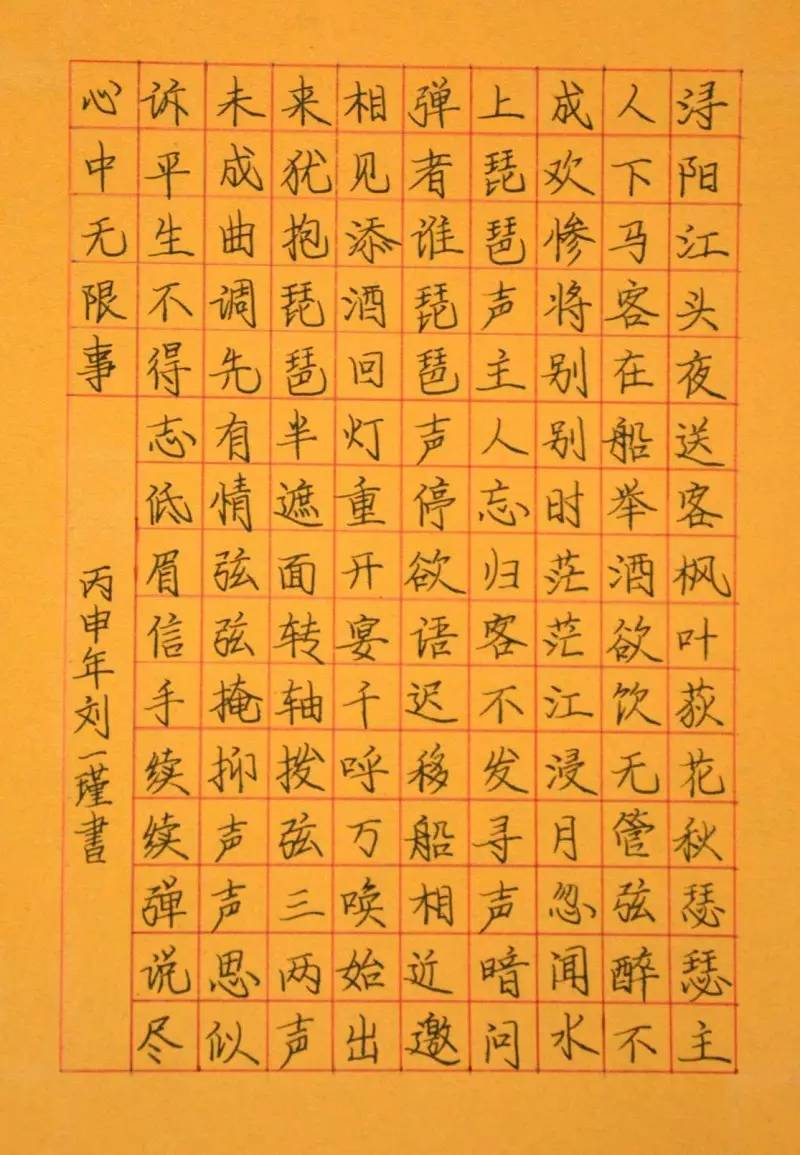 浔阳江头夜送客枫叶荻花秋瑟瑟主
人下马客在船举酒欲饮无管弦醉不
成欢惨将别别时茫茫江浸月忽闻水
上琵琶声主人忘归客不发寻声暗问
弹者谁琵琶声停欲语迟移船相近邀
相见添酒回灯重开宴千呼万唤始出
来犹抱琵琶半遮面转轴拨弦三两声
未成曲调先有情弦弦掩抑声声思似
诉平生不得志低眉信手续续弹说尽
心中无限事
丙申年刘一瑾書